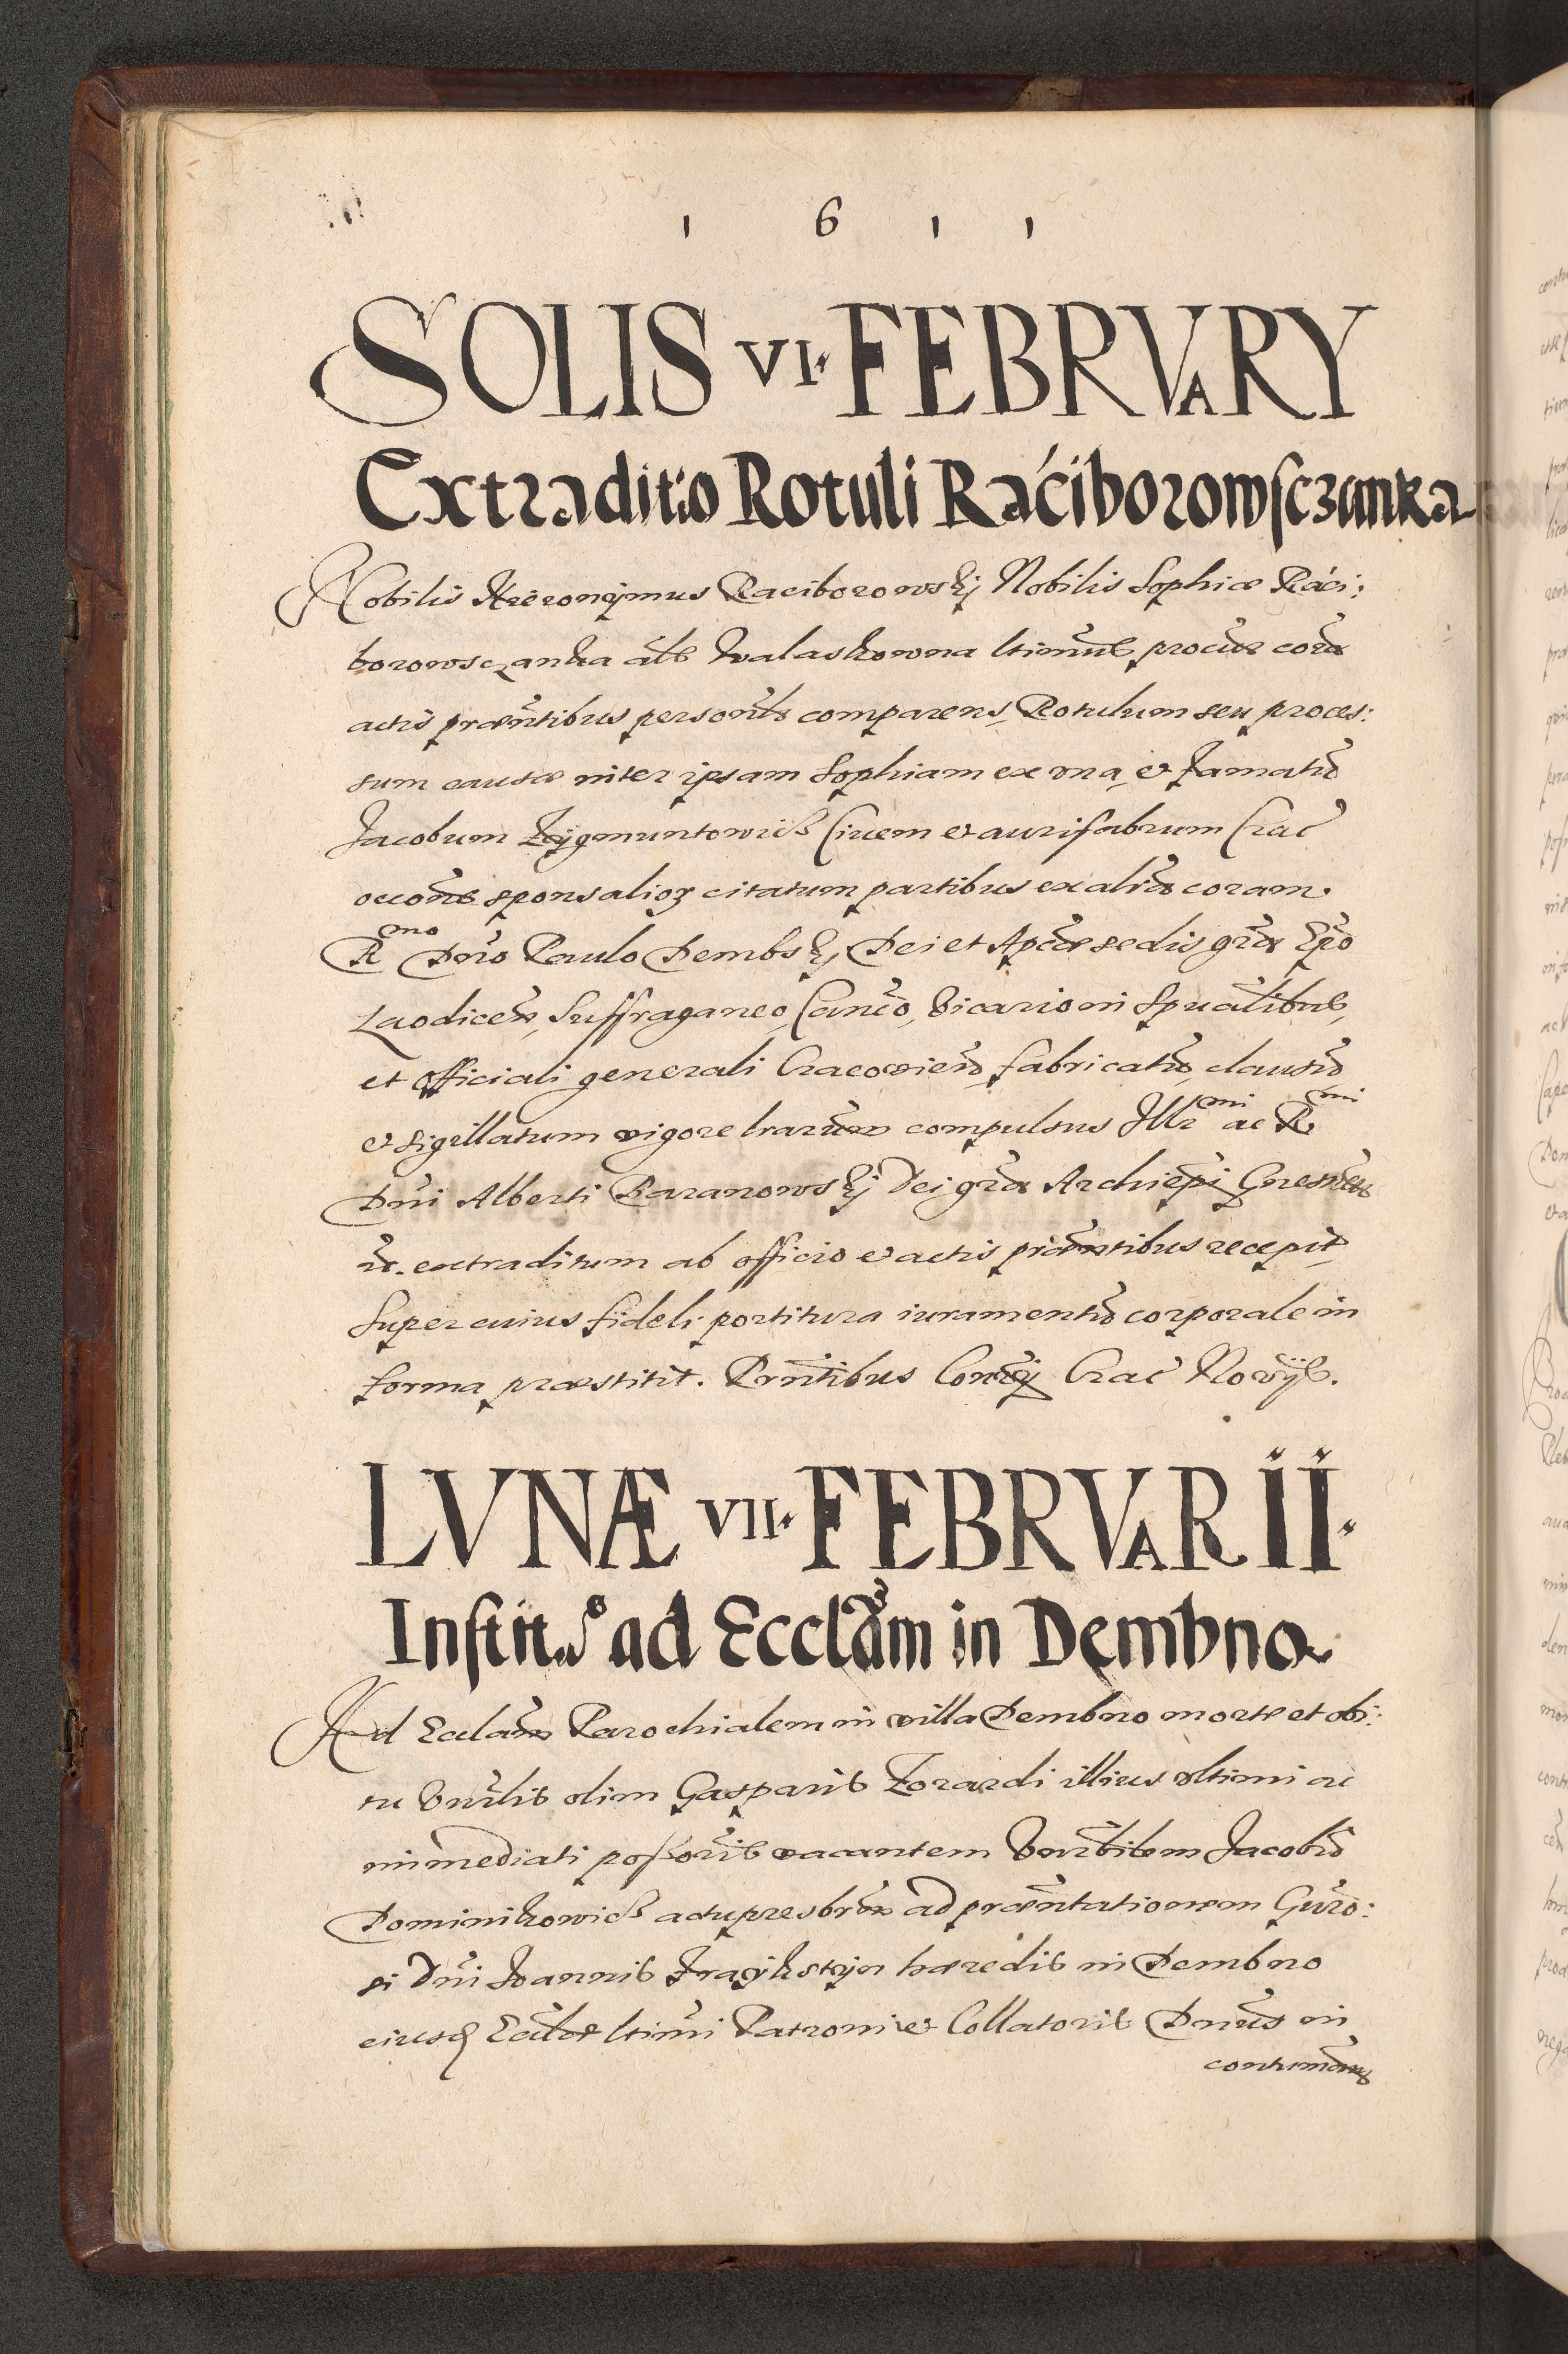 1 6 1 1
SOLIS VI. FEBRVARY
Extraditio Rotuli Raćiborowsczanka
Nobilis Hieronymus Raciborowskj Nobilis Sophiæ Ráci:
borowsczanka als Walaskowna ltimus procur cora
actis præntibus personlr comparens, Rotulum seu proces:
sum causæ inter ipsam Sophiam ex una, et famatu
Jacobum Zygmuntowicz Civem et aurifabrum Crac
occone sponsalior citatum partibus ex alia coram
Rmo Dno Paulo Dembskj Dei et Apcæ sedis gra Epo
Laodicen, Suffraganeo, Canco, Vicario in Spualibus,
et officiali generali Cracovien, fabricatu, clausu
et sigillatum vigore lrarum compulsus Illmi ac Rmi
Dni Alberti Baranowskj Dei gra Archiepi Gnesnen
etc. extraditum ab officio et actis præntibus recepit
Super cuius fideli portitura iuramentu corporale in
forma præstitit. Prntibus Crac Norys.
LVNÆ VII. FEBRVARII.
Instit.o ad Ecclam in Dembno
Ad Ecclam Parochialem in villa Dembno morte et obi:
tu Vnrlis olim Gasparis Zorardi illius vltimi ac
immediati possoris vacantem Vnrbilem Jacobu
Dominikowicz actu presbrum ad præntationem Gnro:
si Dni Joannis hæredis in Dembno
eiusq Ecclæ ltimi Patroni et Collatoris Dnus in